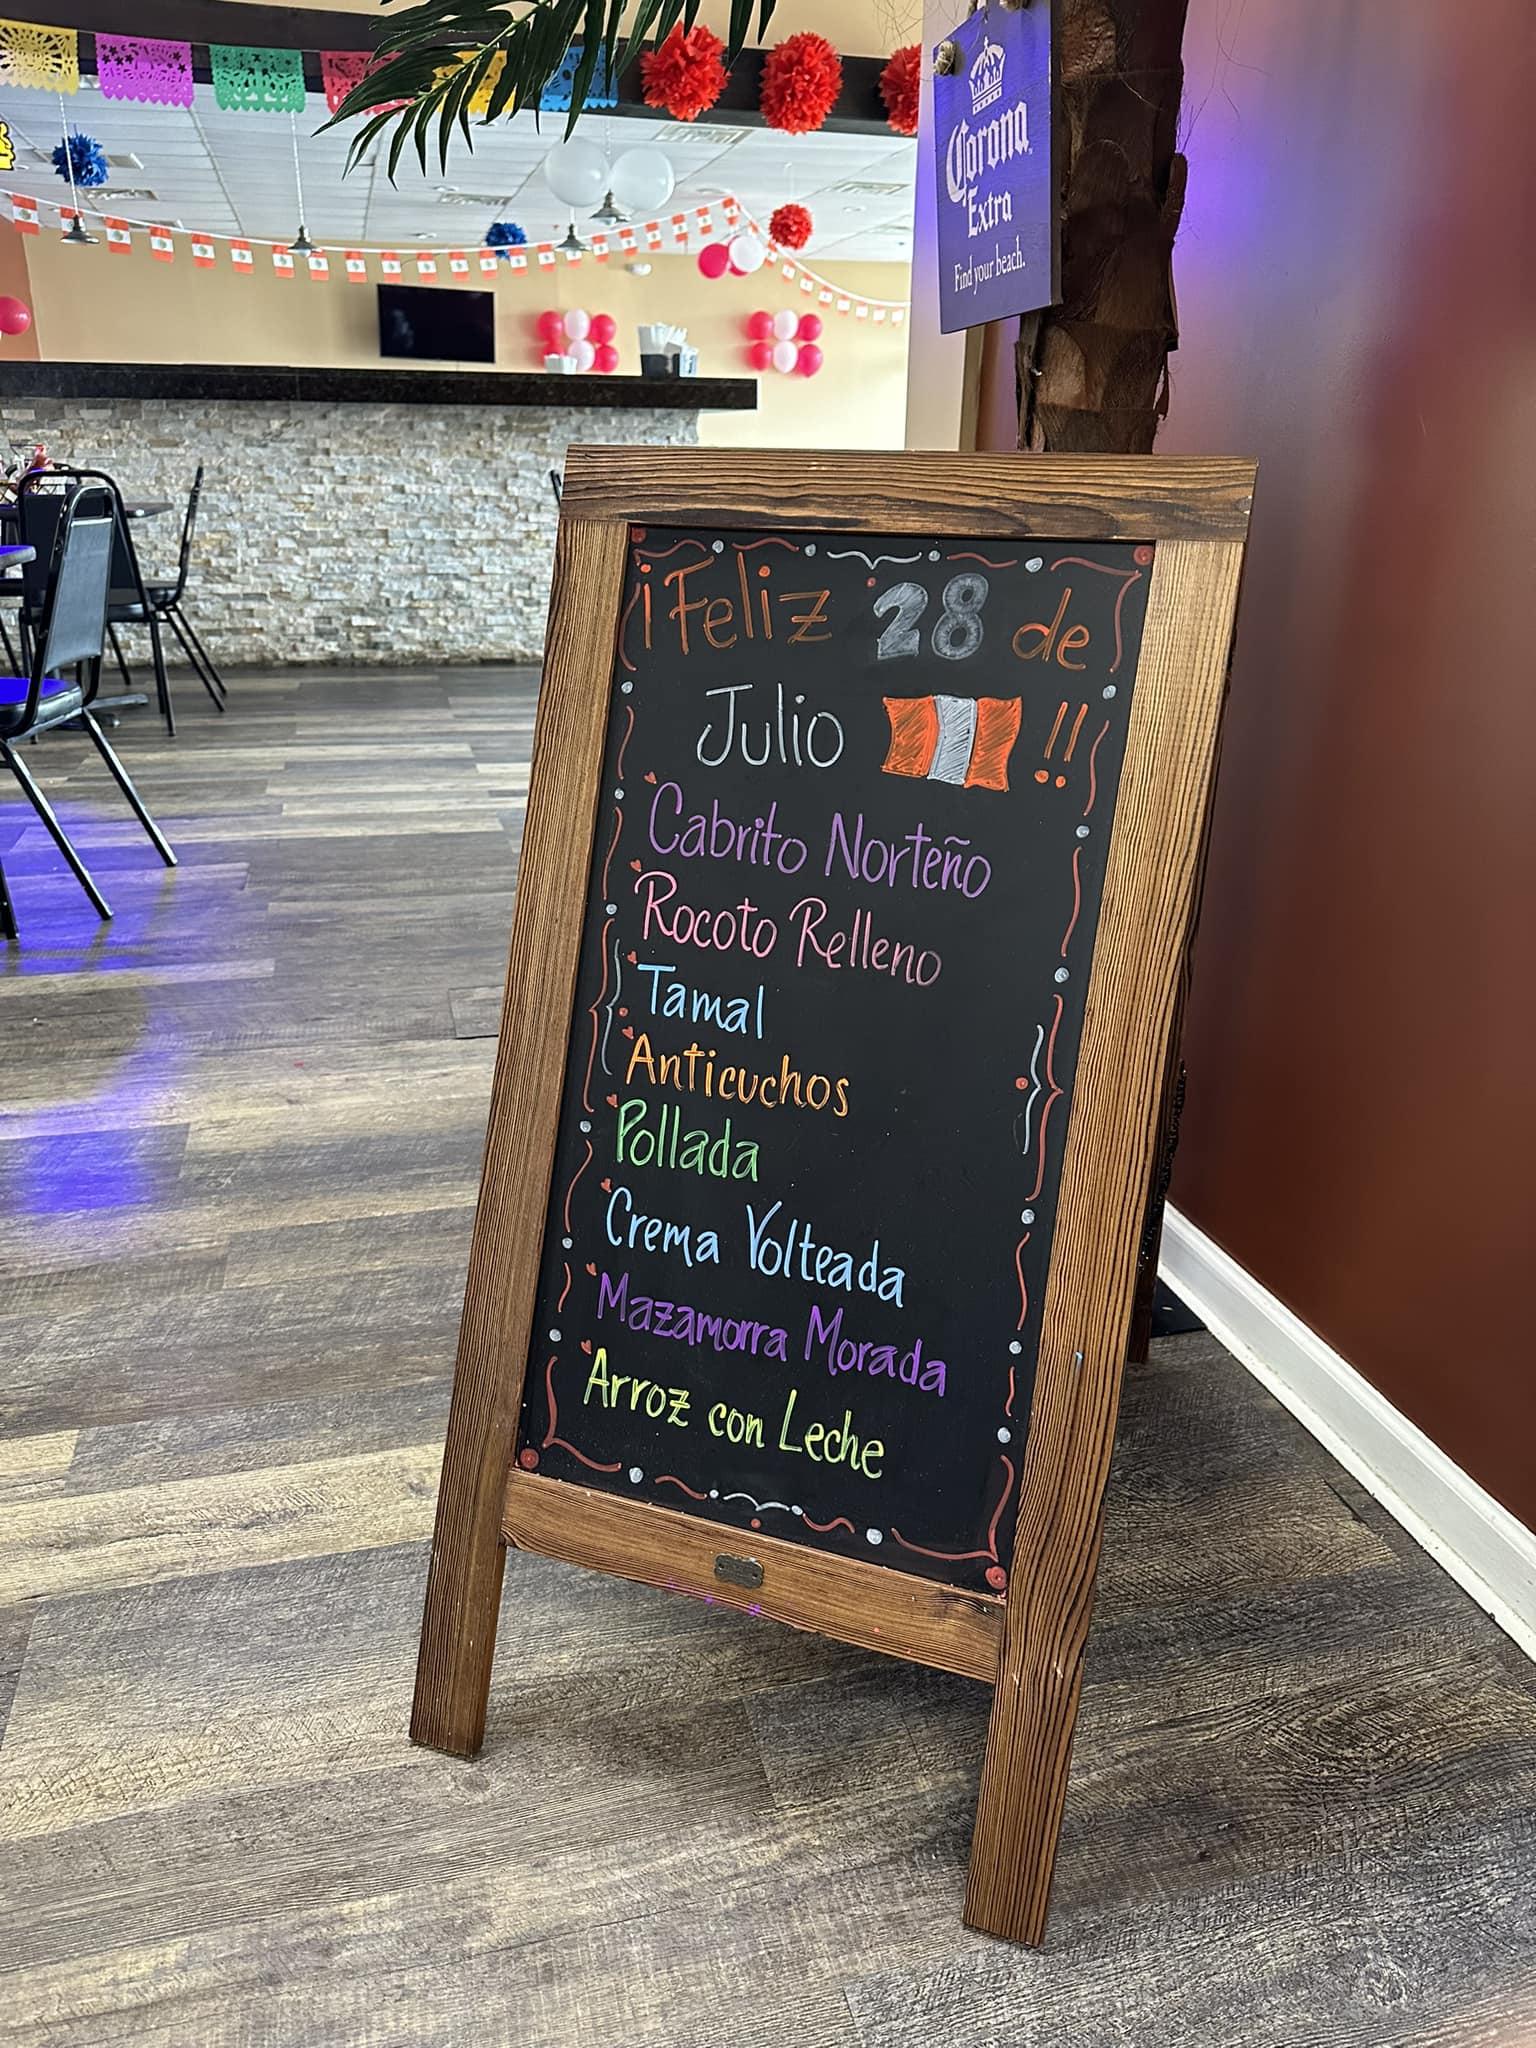 Corona
Extra
Find your beach.
¡Feliz 28 de
Julio !!
Cabrito Norteño
Rocoto Relleno
Tamal
Anticuchos
Pollada
Crema Volteada
Mazamorra Morada
Arroz con Leche